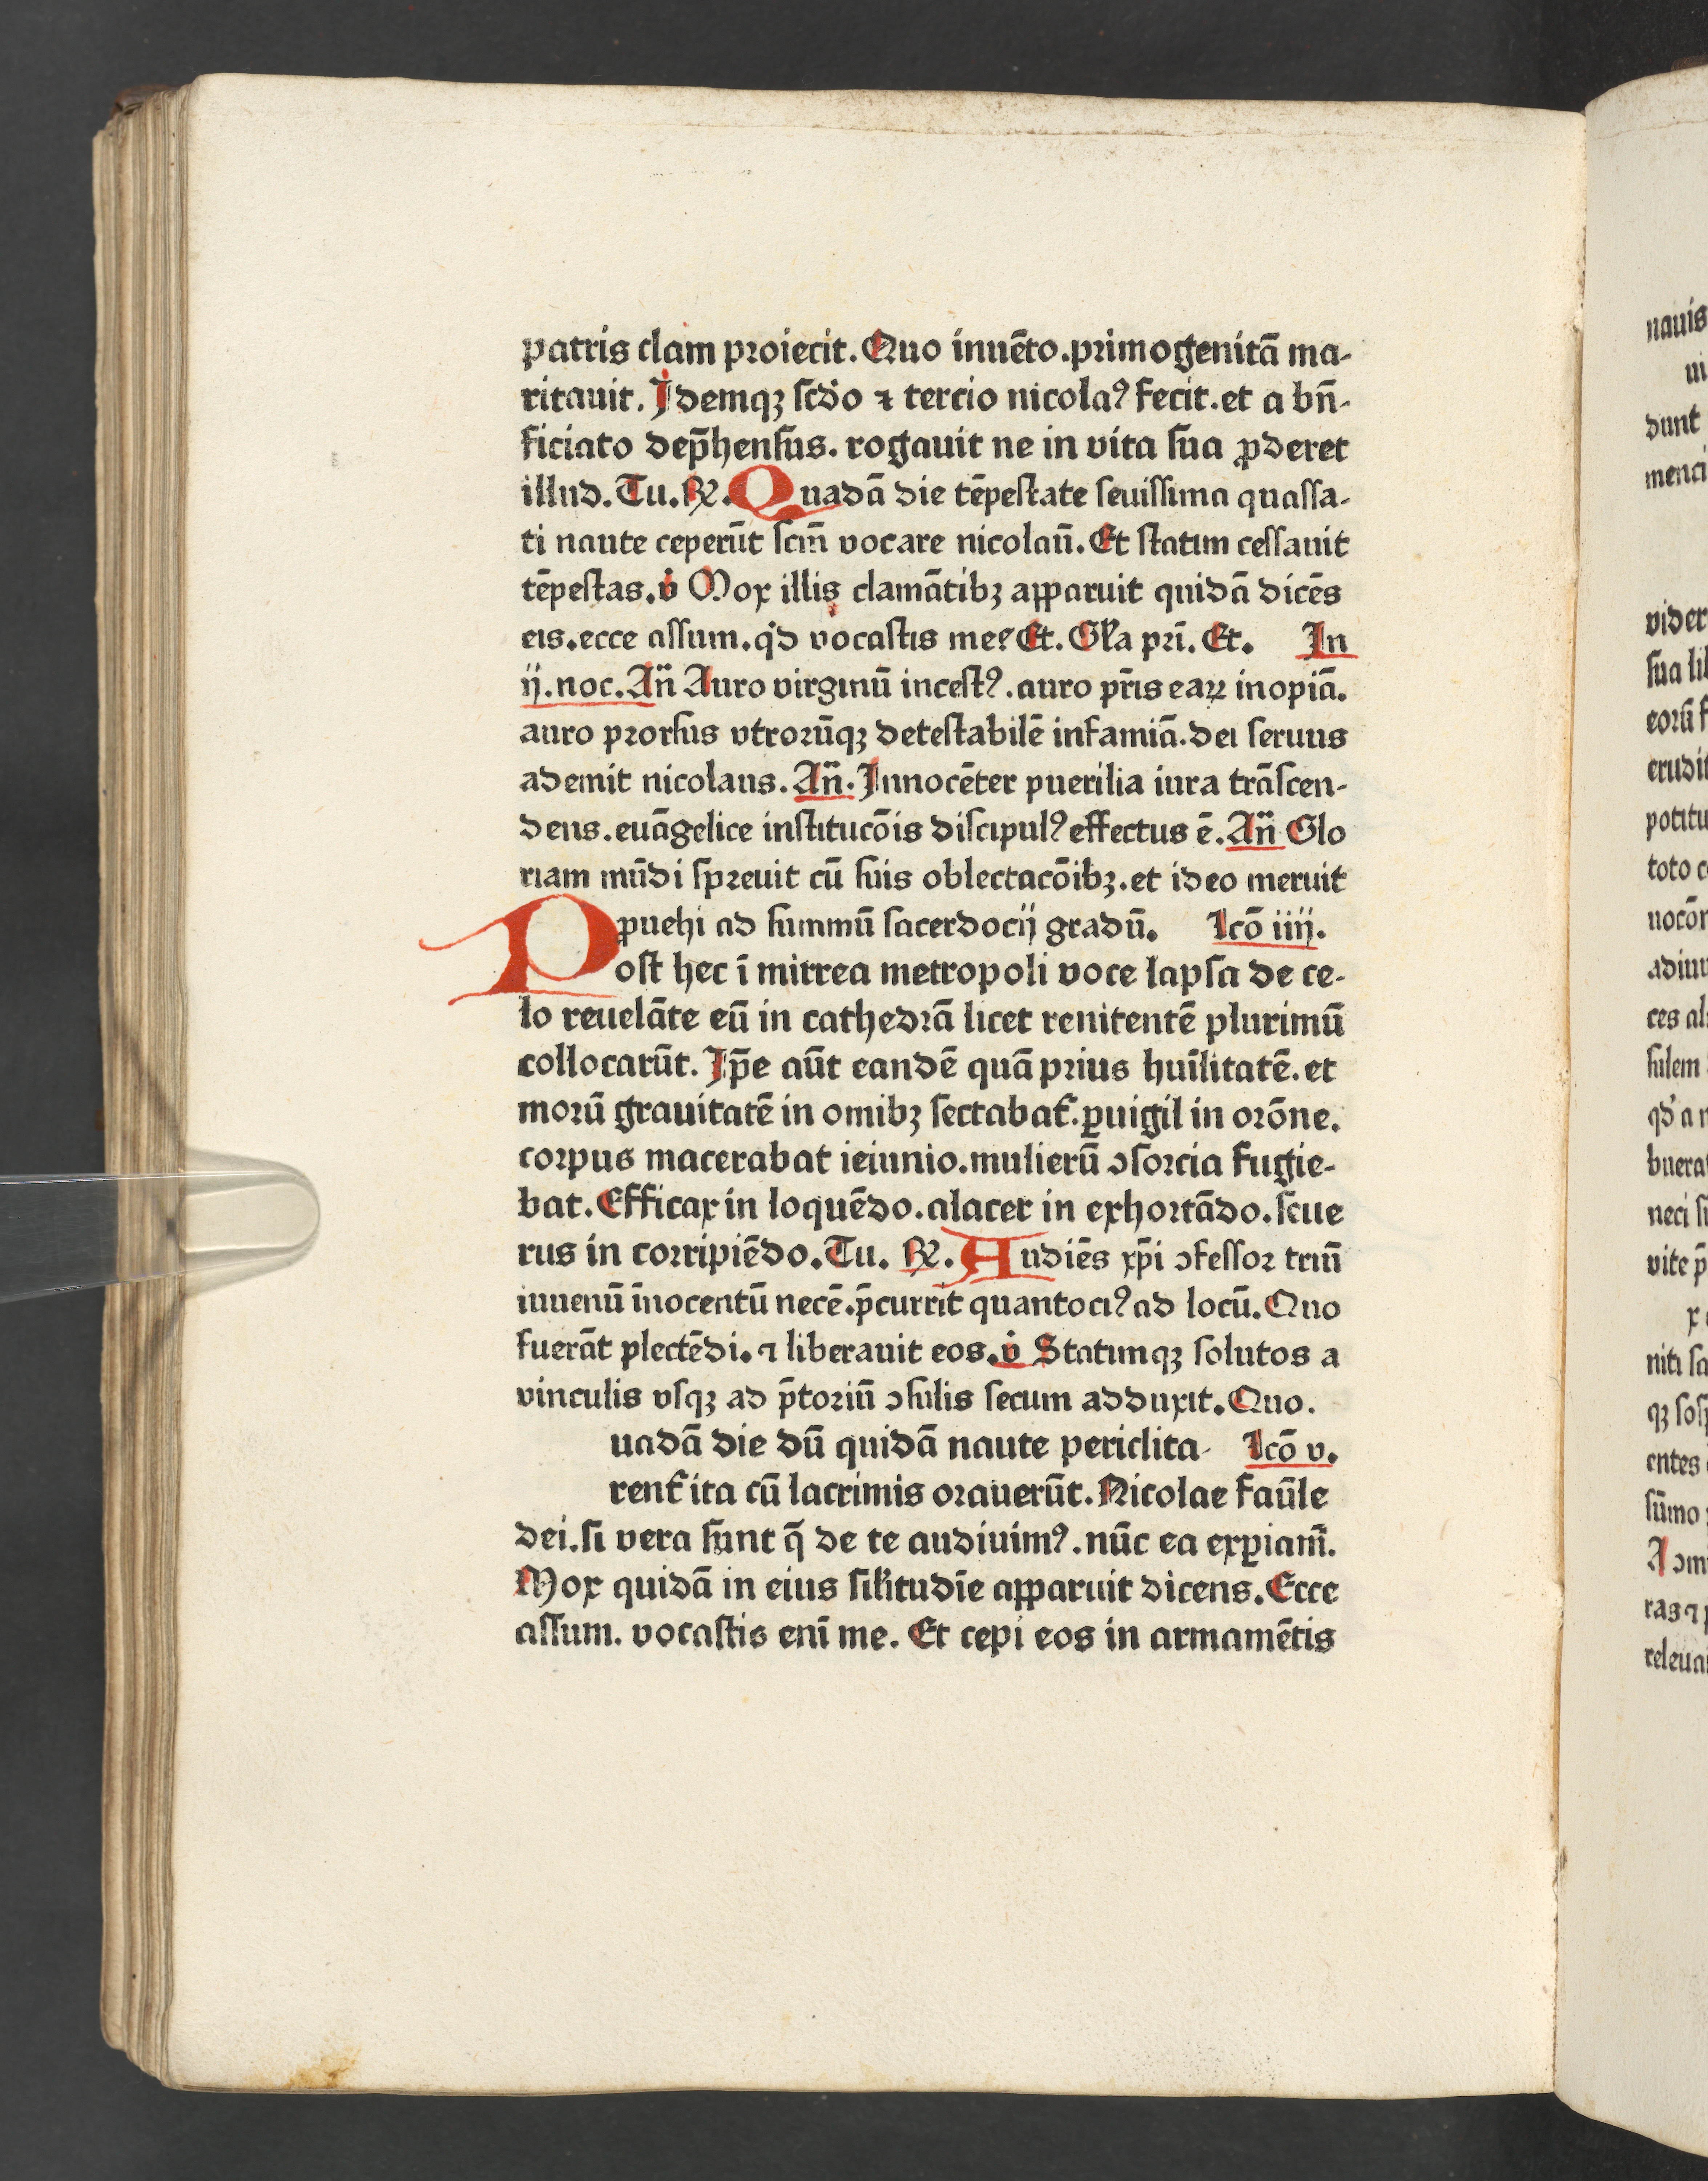 patris clam proiecit. Quo inuēto. primogenitā ma-
ritauit. Idemqꝫ scd̄o ⁊ tercio nicolaꝰ fecit. et a bn̄-
ficiato dep̄hensus. rogauit ne in vita sua ꝓderet
illud. Tu. ℟. Quadā die tēpestate seuissima quassa-
ti naute ceperūt scm̄ vocare nicolaū. Et statim cessauit
tēpestas. v̇ Mox illis clamātibꝫ apparuit quidā dicēs
eis. ecce assum. qd̓ vocastis me? Et. Gl̓a pr̄i. Et. In
ij. noc. An̄ Auro virginū incestꝰ. auro pr̄is eaꝝ inopiā.
auro prorsus vtrorūqꝫ detestabilē infamiā. dei seruus
ademit nicolaus. An̄. Innocēter puerilia iura trāscen-
dens. euāgelice institucōis discipulꝰ effectus ē. An̄ Glo
riam mūdi spreuit cū suis oblectacōibꝫ. et ideo meruit
ꝓuehi ad summū sacerdocij gradū. Lcō iiij.
Post hec ī mirrea metropoli voce lapsa de ce-
lo reuelāte eū in cathedrā licet renitentē plurimū
collocarūt. Ip̄e aūt eandē quā prius huīlitatē. et
morū grauitatē in omibꝫ sectabat᷑. ꝑuigil in orōne.
corpus macerabat ieiunio. mulierū ↄsorcia fugie-
bat. Efficax in loquēdo. alacer in exhortādo. seue
rus in corripiēdo. Tu. ℟. Audiēs xp̄i ↄfessor triū
iuuenū īnocentū necē. p̄currit quantociꝰ ad locū. Quo
fuerāt plectēdi. ⁊ liberauit eos. v̇ Statimqꝫ solutos a
vinculis vsqꝫ ad p̄toriū ↄsulis secum adduxit. Quo.
uadā die dū quidā naute periclita- Lcō v.
rent᷑ ita cū lacrimis orauerūt. Nicolae faūle
dei. si vera sunt q̄ de te audiuimꝰ. nūc ea exꝑiam̄.
Mox quidā in eius sil̓itudīe apparuit dicens. Ecce
assum. vocastis enī me. Et cepi eos in armamētis